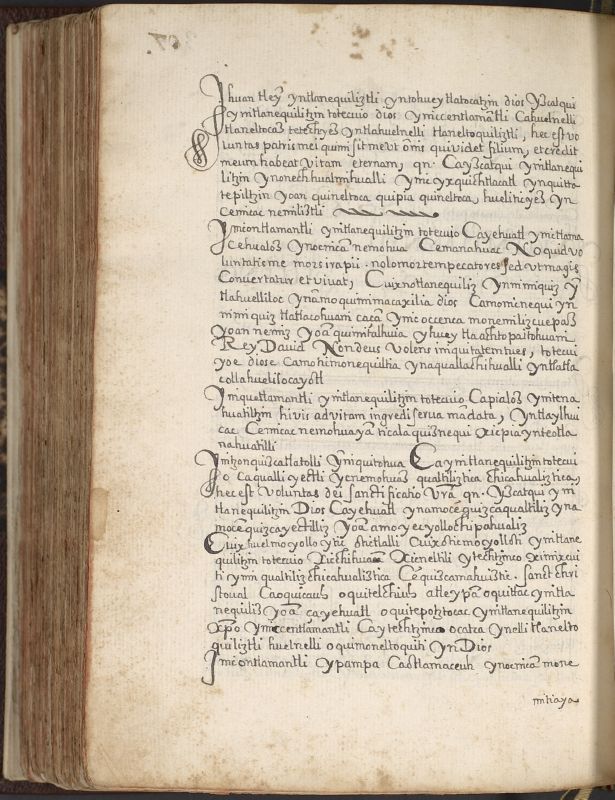 Jhuan tleȳ yntlanequiliztli yntohueytlatocatzin dios yzcatqui
cymtlanequilitzin totecuio dios ymiccentlamātli Cahuelnelli
tlaneltocas tetechyes yntlahuelnelli tlaneltoquiliztli, hec est vo
luntas patris mei qui misit me ut om̄is qui videt filium, et credit
meum habeat vitam eternam, qn. Cayzcatqui ymtlanequi
litzin ynonechhualmihualli ymic yxquichtlacatl ynquitta
tepiltzin yoan quineltoca quipia quineltoca, hueliticyes yn
cemicac nemiliztli
Jmicontlamantli ymtlanequilitzin totecuio Cayehuatl ymictlama
cehualos ynocnicā nemohua Cemanahuac No quid vo
luntatis me mors impii. nolo mortem peccatores sed ut magis
Convertatur et vivat, Cuix notlanequiliz ynmimiquiz ȳ
tlahuelliloc ynāmo quimimacaxilia dios Camonicnequi yn
mimiquiz tlatlacohuani cacā ymic occenca monemilizcuepas
yoan nemiz yoā quimitalhuia yhuey tlaachtopaitohuani
Rey David Non deus volens iniquitatem tues, totecui
yoe diose Camo ticmonequiltia ynaquallachihualli yntlatla
collahuelilocayotl
Jmiquetlamantli ymtlanequilitzin totecuio Capialos ymtena
huatiltzin si vis ad vitam ingredi serua mādata, yntlaylhui
cac Cemicac nemohuayā ticalaquiznequi xicpia ynteotla
nahuatilli
Jmtzonquizcatlatolli ynniquitohua Caymtlanequilitzin totecui
o caqualli cyectli ycnemohuas qualtiliztica chicahualiztica,
hec est Voluntas dei sanctificatio Vrā qn. yzcatqui ym
tlanequilitzin Dios Cayehuatl ynamocēquizcaqualtiliz yna
mocēquizcayectiliz yoā amoyecyollochipahualiz
Cuix huelmoyollo ytic otictlalli Cuix oticmocyolloti ymtlane
quilitzin totecuio xicchihuaa xicneltili ytechtzinco ximixcui
ti cynin qualtiliz chicahualiztica Cēquizcamahuiztic. sanct chri
stoual Caoquicauh oquitelchiuh atleypā oquittac ymtla
nequilis yoā cayehuatl oquitepotztocac ymtlanequilitzin
xp̄o ymiccentlamantli Caytechtzinco ocatca ynelli tlanelto
quiliztli huelnelli oquimoneltoquiti yn Dios
Jmicontlamantli ypampa Caotlamaceuh ynocnicā mone
mitiaya